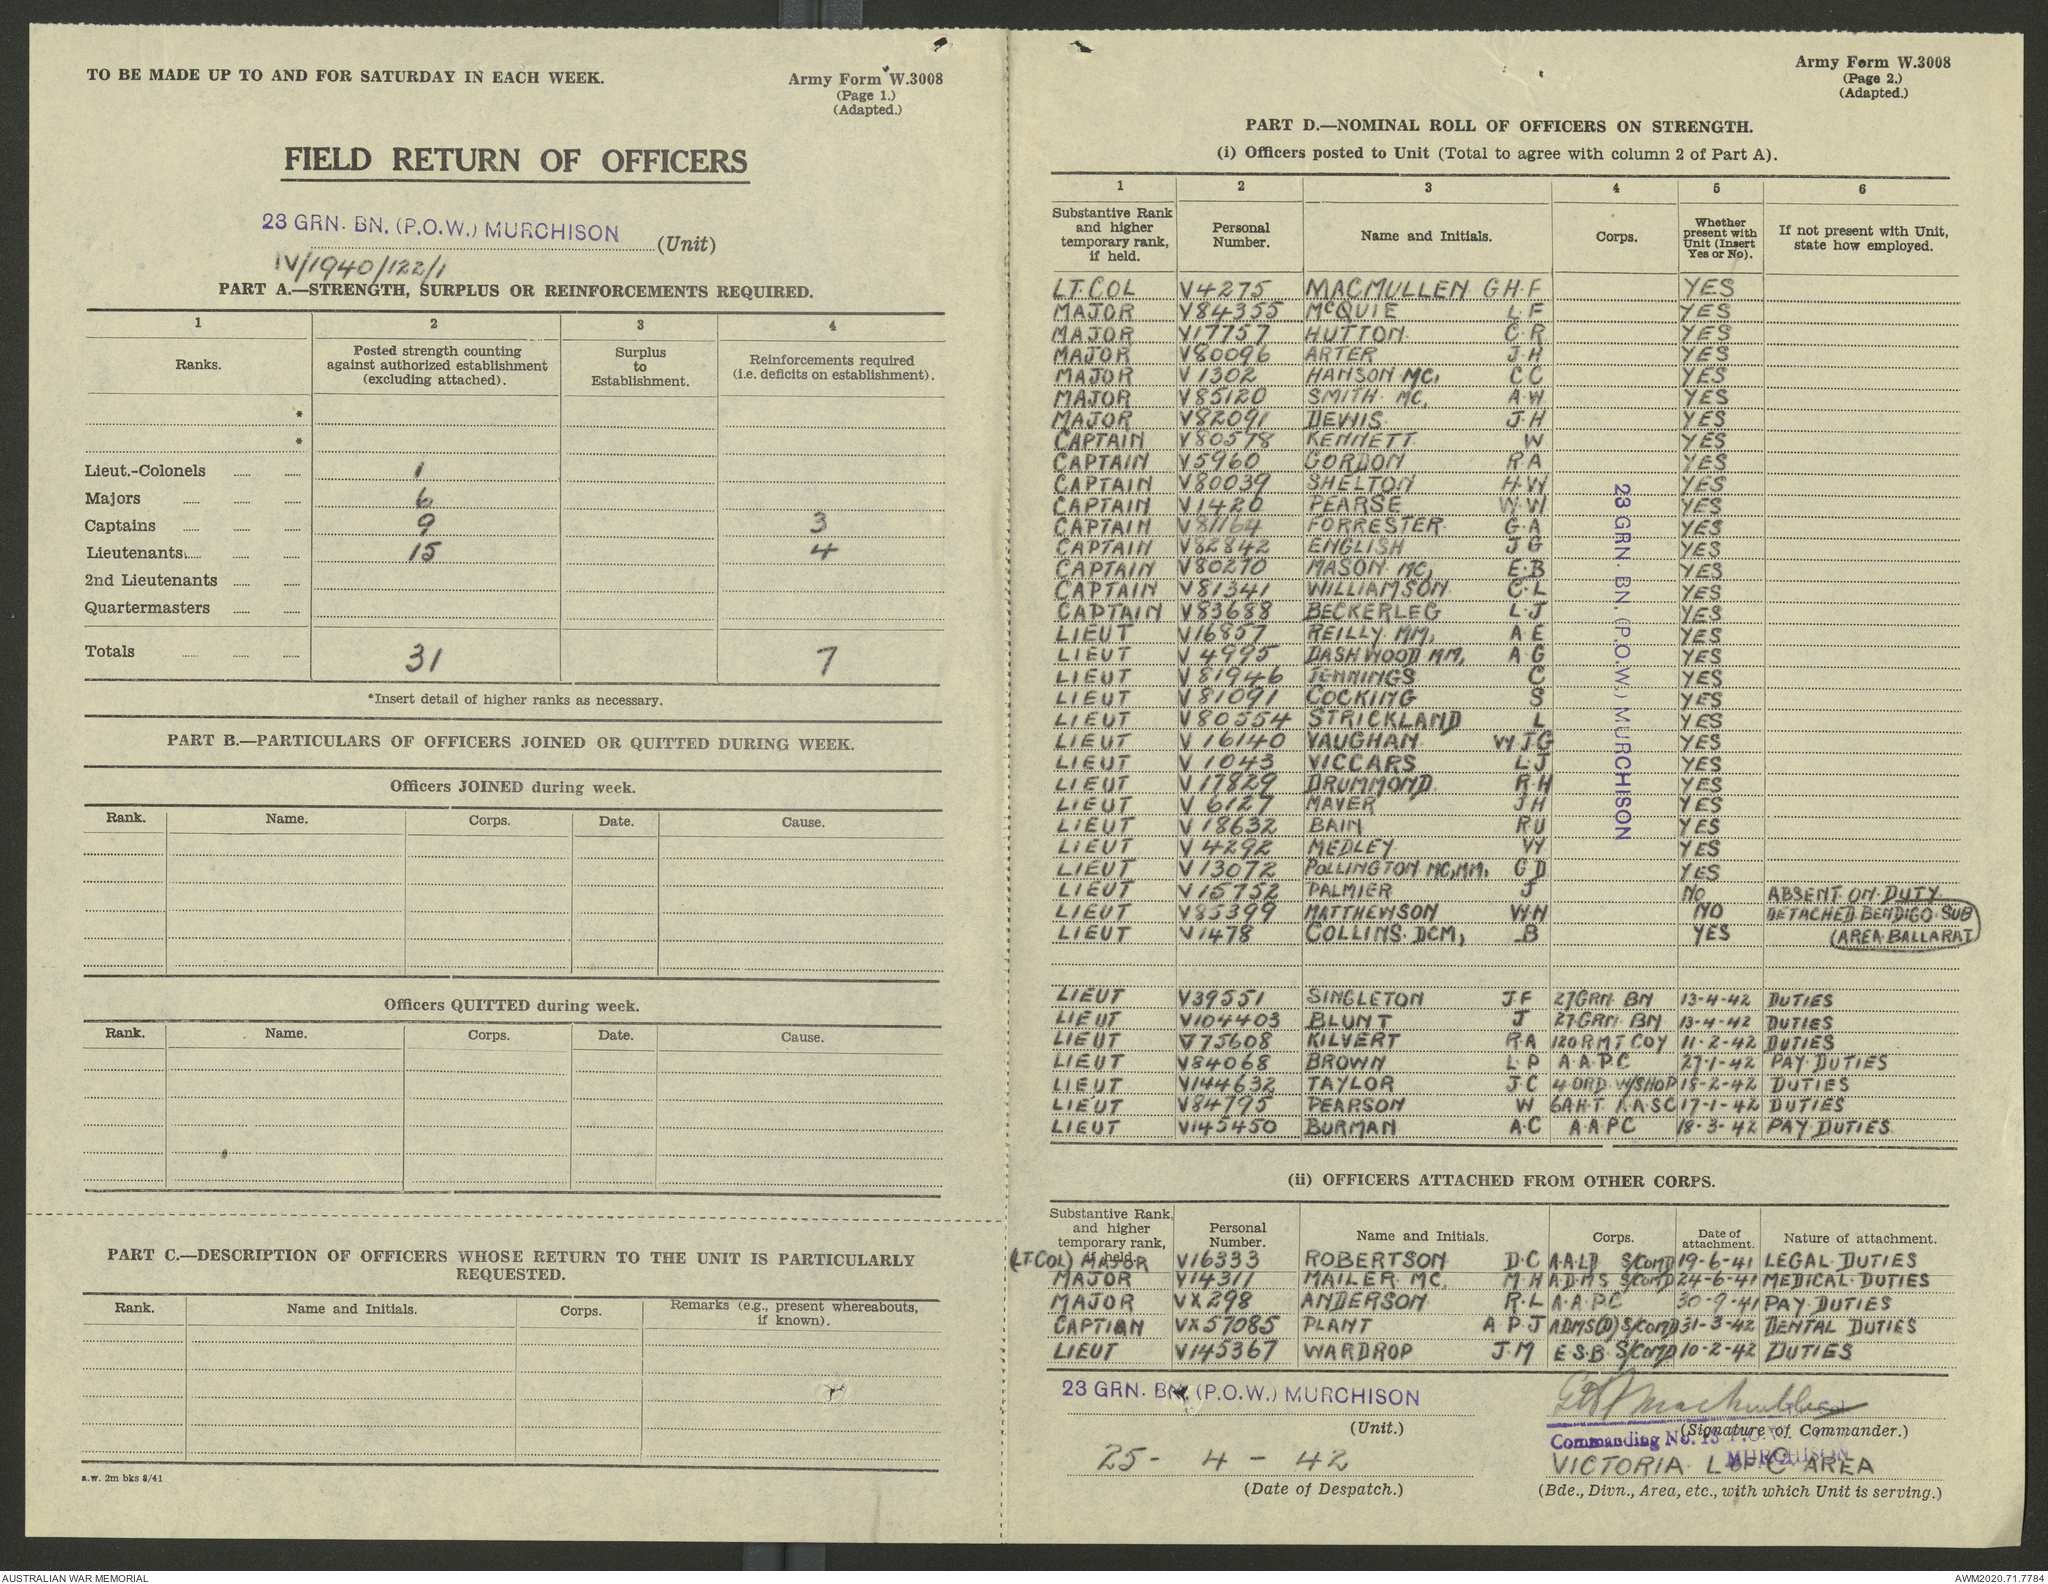 TO BE MADE UP TO AND FOR SATURDAY IN EACH WEEK.
Army Form W.3008
(Page 1.)
(Adapted.)
FIELD RETURN OF OFFICERS
23 GRN. BN. (P.O.W.) MURCHISON (Unit)
IV/1940/122/1
PART A.—STRENGTH, SURPLUS OR REINFORCEMENTS REQUIRED.
1 2 3 4
Ranks. Posted strength counting against authorized establishment (excluding attached). Surplus to Establishment. Reinforcements required (i.e. deficits on establishment).
*
*
Lieut.-Colonels 1
Majors 6
Captains 9 3
Lieutenants 15 4
2nd Lieutenants
Quartermasters
Totals 31 7
*Insert detail of higher ranks as necessary.
PART B.—PARTICULARS OF OFFICERS JOINED OR QUITTED DURING WEEK.
Officers JOINED during week.
Rank. Name. Corps. Date. Cause.
Officers QUITTED during week.
Rank. Name. Corps. Date. Cause.
PART C.—DESCRIPTION OF OFFICERS WHOSE RETURN TO THE UNIT IS PARTICULARLY
REQUESTED.
Rank. Name and Initials. Corps. Remarks (e.g., present whereabouts, if known).
a.w. 2m bks 8/41
Army Form W.3008
(Page 2.)
(Adapted.)
PART D.—NOMINAL ROLL OF OFFICERS ON STRENGTH.
(i) Officers posted to Unit (Total to agree with column 2 of Part A).
1 2 3 4 5 6
Substantive Rank and higher temporary rank, if held. Personal Number. Name and Initials. Corps. Whether present with Unit (Insert Yes or No). If not present with Unit, state how employed.
LT. COL V4275 MACMULLEN G.H.F YES
MAJOR V84355 McQUIE L.F YES
MAJOR V17757 HUTTON C.R YES
MAJOR V80096 ARTER J.H YES
MAJOR V1302 HANSON MC, C C YES
MAJOR V85120 SMITH MC, A.W YES
MAJOR V82091 DEWIS J.H YES
CAPTAIN V80578 KENNETT W YES
CAPTAIN V5960 GORDON R.A YES
CAPTAIN V80039 SHELTON H.W YES
CAPTAIN V1420 PEARSE W.W YES
CAPTAIN V81164 FORRESTER G.A YES
CAPTAIN V82842 ENGLISH J G YES
CAPTAIN V80270 MASON MC, E.B YES
CAPTAIN V81341 WILLIAMSON C.L YES
CAPTAIN V83688 BECKERLEG L.J YES
LIEUT V16857 REILLY MM, A E YES
LIEUT V4995 DASHWOOD MM, A G YES
LIEUT V81946 JENNINGS C YES
LIEUT V81091 COCKING S YES
LIEUT V80554 STRICKLAND L YES
LIEUT V16140 VAUGHAN W J G YES
LIEUT V1043 VICCARS L.J YES
LIEUT V17829 DRUMMOND R.H YES
LIEUT V6127 MAVER J H YES
LIEUT V18632 BAIN R U YES
LIEUT V4292 MEDLEY W YES
LIEUT V13072 POLLINGTON MC, MM, G D YES
LIEUT V15752 PALMIER J NO ABSENT ON DUTY
LIEUT V85399 MATTHEWSON W.N NO DETACHED BENDIGO SUB
LIEUT V1478 COLLINS DCM, B YES (AREA BALLARAT
23 GRN. BN. (P.O.W.) MURCHISON
LIEUT V39551 SINGLETON J F 27 GRN BN 13-4-42 DUTIES
LIEUT V104403 BLUNT J 27 GRN BN 13-4-42 DUTIES
LIEUT V75608 KILVERT R A 120 R M T COY 11-2-42 DUTIES
LIEUT V84068 BROWN L P A.A.P.C 27-1-42 PAY DUTIES
LIEUT V144632 TAYLOR J.C 4 ORD W/SHOP 18-2-42 DUTIES
LIEUT V84795 PEARSON W 6 A.H.T A.A.S.C 17-1-42 DUTIES
LIEUT V145450 BURMAN A.C A A P C 18-3-42 PAY DUTIES
(ii) OFFICERS ATTACHED FROM OTHER CORPS.
Substantive Rank, and higher temporary rank, if held. Personal Number. Name and Initials. Corps. Date of attachment. Nature of attachment.
(LT. COL) MAJOR V16333 ROBERTSON D.C A.A.L.D S/COMD 19-6-41 LEGAL DUTIES
MAJOR V14311 MAILER MC. M H A.D.M.S S/COMD 24-6-41 MEDICAL DUTIES
MAJOR VX298 ANDERSON R.L A.A.P.C 30-9-41 PAY DUTIES
CAPTIAN VX57085 PLANT A P J ADMS(D) S/COMD 31-3-42 DENTAL DUTIES
LIEUT V145367 WARDROP J.M E.S.B S/COMD 10-2-42 DUTIES
23 GRN. BN. (P.O.W.) MURCHISON
(Unit.)
GHF MacMullen
(Signature of Commander.)
Commanding No. 13 P.O.W.
MURCHISON
25 - 4 - 42
(Date of Despatch.)
VICTORIA L OF C AREA
(Bde., Divn., Area, etc., with which Unit is serving.)
AUSTRALIAN WAR MEMORIAL
AWM2020.71.7784